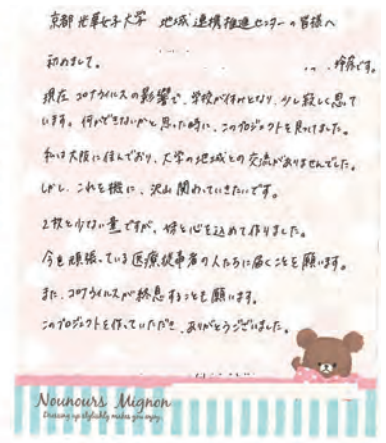 京都光華女子大学 地域連携推進センターの皆様へ
初めまして。
です。
現在コロナウイルスの影響で、学校が休みとなり、少し寂しく思って
います。何かできないかと思った時に、このプロジェクトを見つけました。
私は大阪に住んでおり、大学の地域との交流がありませんでした。
しかし、これを機に、沢山関わっていきたいです。
2枚と少ない量ですが、妹と心を込めて作りました。
今も頑張っている医療従事者の人たちに届くことを願います。
また、コロナウイルスが終息することも願います。
このプロジェクトを作っていただき、ありがとうございました。
Nounours Mignon
Dressing up stylishly makes you enjoy.